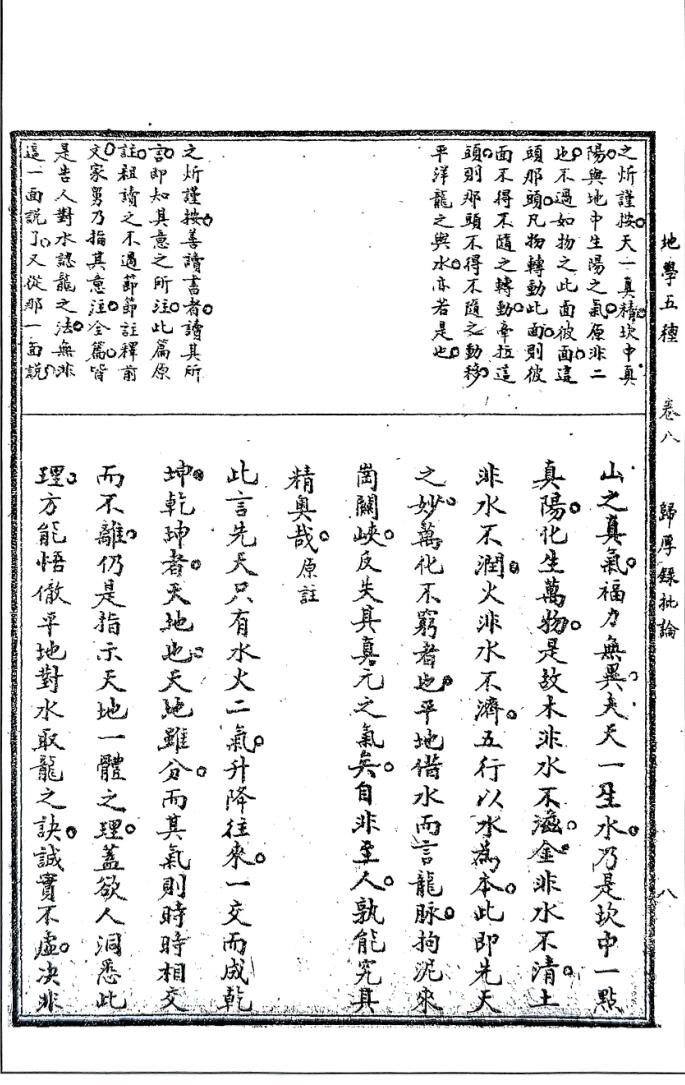 地學五種 卷八 歸厚錄批論 八
之炘謹按天一真精坎中真
陽與地中生陽之氣原非二
也不過如物之此面彼面這
頭那頭凡物轉動此面則彼
面不得不隨之轉動牽拉這
頭則那頭不得不隨之動移
平洋龍之與水亦若是也
之炘謹按善讀書者讀其所
言即知其意之所注此篇原
註粗讀之不過節節註釋前
文家舅乃指其意注全篇皆
是告人對水認龍之法無非
這一面說了又從那一面說
山之真氣福力無異夫天一生水乃是坎中一點
真陽化生萬物是故木非水不滋金非水不清土
非水不潤火非水不濟五行以水為本此即先天
之妙萬化不窮者也平地借水而言龍脉拘泥來
崗關峽反失其真元之氣矣自非至人孰能究其
精奥哉原註
此言先天只有水火二氣升降往來一交而成乾
坤乾坤者天地也天地雖分而其氣則時時相交
而不離仍是指示天地一體之理蓋欲人洞悉此
理方能悟徹平地對水取龍之訣誠實不虛决非